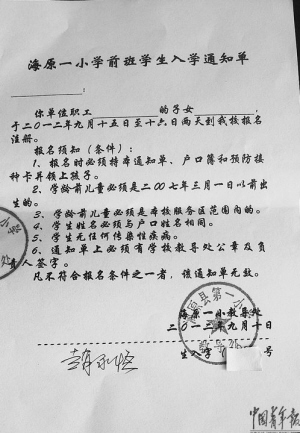 海原一小学前班学生入学通知单
：
你单位职工 的子女 ，
于二0一二年九月十五日至十六日两天到我校报名
注册。
报名须知（条件）：
1、报名时必须持本通知单、户口簿和预防接
种卡并领上孩子。
2、学龄前儿童必须是二00七年三月一日以前出
生的。
3、学龄前儿童必须是本校服务区范围内的。
4、学生姓名必须与户口姓名相同。
5、学生无任何传染性疾病。
6、通知单上必须有学校教导处公章及负
责人签字。
凡不符合报名条件之一者，该通知单无效。
海原县第一小
海原一小教导处
二0一二年九月十日
生入学 号
中国青年报